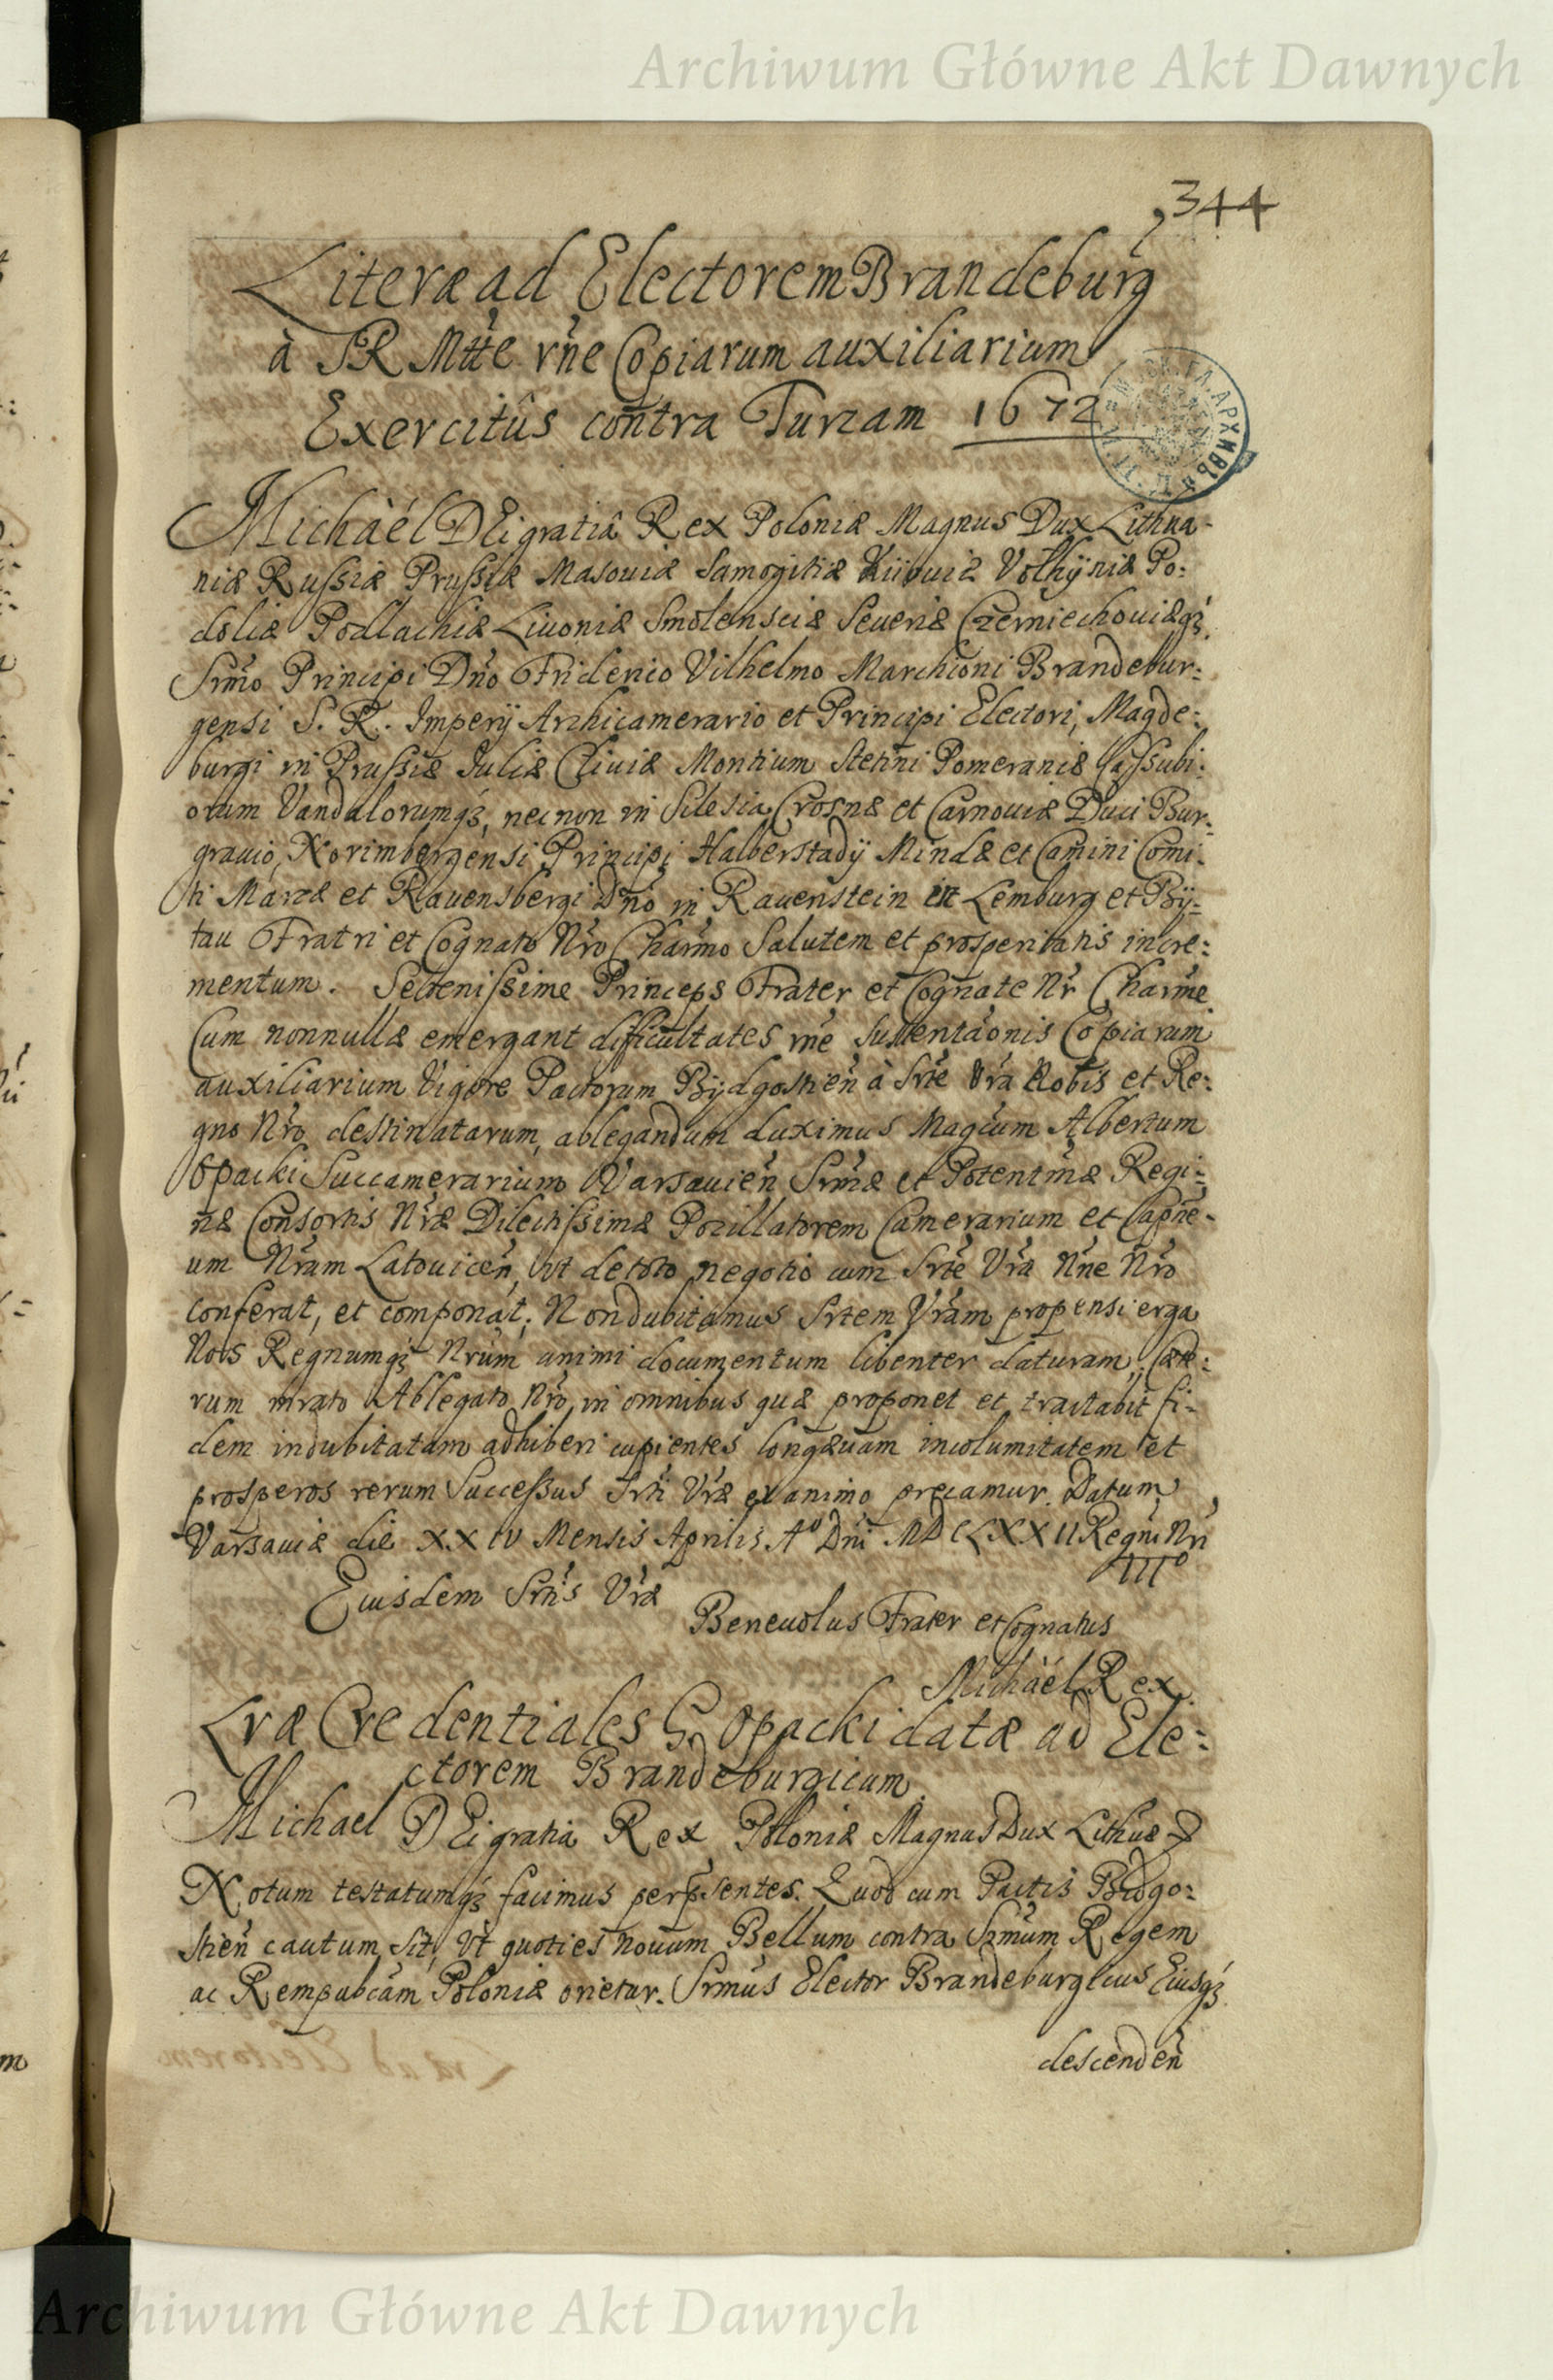 Archiwum Główne Akt Dawnych
344
Literæ ad Electorem Brandeburg
à SR Mtte rñe Copiarum auxiliarium
Exercitûs contra Turcam 1672
Michàél DEi gratiâ Rex Poloniæ Magnus Dux Lithua-
niæ Russiæ Prussiæ Masouiæ Samogitiæ Kiiouiæ Volhÿniæ Po:
doliæ Podlachiæ Liuoniæ Smolensciæ Seueriæ Czerniechouiæq3
Srmo Principi Dño Friderico Vilhelmo Marchioni Brandebur:
gensi S. R. Imperÿ Archicamerario et Principi Electori, Magde:
burgi in Prussiæ Juliæ Cliuiæ Montium Stetini Pomeraniæ Cassubi:
orum Vandalorumq3, necnon in Silesia Crosnæ et Carnouiæ Duci Bur:
grauio Norimbergensi Principi Halberstadÿ Mindæ et Camini Comi:
ti Marcæ et Rauensbergi Dño in Rauenstein et Lemburg et Bÿ:
tau Fratri et Cognato Nro Charmo Salutem et prosperitatis incre:
mentum. Serenissime Princeps Frater et Cognate Nr Charme
Cum nonnullæ emergant dificultates rñe sustentaonis Copiarum
auxiliarium Vigore Pactorum Bÿdgostieñ à Srte Vra Nobis et Re:
gno Nro destinatarum, ablegandum duximus Magcum Albertum
Opacki Succamerarium Varsauieñ Srmæ et Potentmæ Regi:
næ Consortis Nræ Dilectissimæ Pocillatorem Camerarium et Capne-
um Nrum Latouiceñ, Vt de toto negotio cum Srte Vra Nñe Nro
conferat, et componat; Non dubitamus Srtem Vram propensi erga
Nos Regnumq3 Nrum animi documentum libenter daturam; Cæte:
rum mrato Ablegato Nro, in omnibus quæ proponet et tractabit fi-
dem indubitatam adhiberi cupientes longæuam incolumitatem et
prosperos rerum Successus Srti Vræ ex animo precamur. Datum
Varsauiæ die XXIV Mensis Aprilis Aº Dni MDCLXXII Regni Nri
IIIº
Eiusdem Srtis Vræ
Beneuolus Frater et Cognatus
Michàél Rex
Lræ Credentiales G. Opacki datæ ad Ele:
ctorem Brandeburgicum
Michael DEi gratia Rex Poloniæ Magnus Dux Lithuæ
Notum testatumq3 facimus perpsentes. Quod cum Pactis Bidgo:
stieñ cautum sit, Vt quoties nouum Bellum contra Srmum Regem
ac Rempubcam Poloniæ orietur. Srmus Elector Brandeburgicus Eiusq3
descendeñ
Archiwum Główne Akt Dawnych